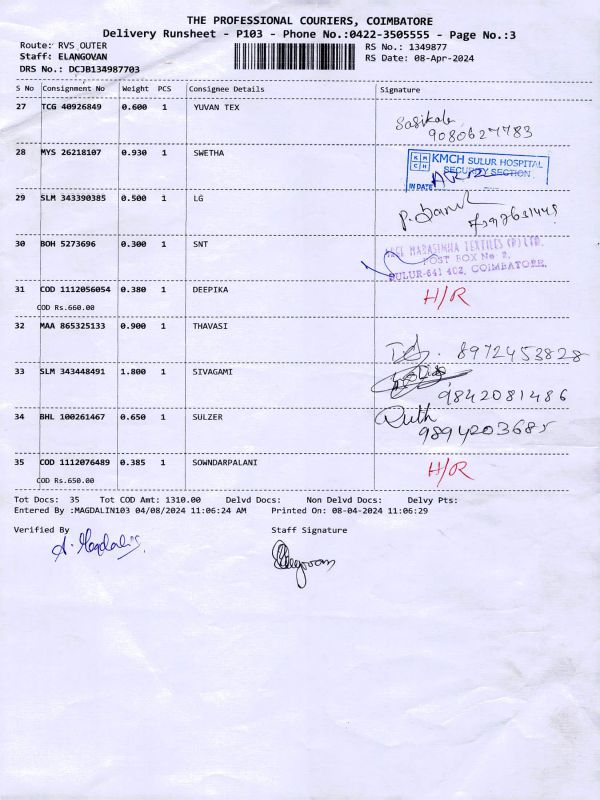 THE PROFESSIONAL COURIERS, COIMBATORE
Delivery Runsheet - P103 - Phone No.:0422-3505555 - Page No.:3
Route: RVS OUTER
RS No.: 1349877
Staff: ELANGOVAN
RS Date: 08-Apr-2024
DRS No.: DCJB134987703
S No Consignment No Weight PCS Consignee Details Signature
27 TCG 40926849 0.600 1 YUVAN TEX
Sasikala
9080627783
28 MYS 26218107 0.930 1 SWETHA
KMCH SULUR HOSPITAL
SECURITY SECTION
IN DATE
29 SLM 343390385 0.500 1 LG
30 BOH 5273696 0.300 1 SNT
NARASIMHA TEXTILES (P) LTD.
POST BOX No 2,
SULUR-641 402, COIMBATORE.
31 COD 1112056054 0.380 1 DEEPIKA H/R
COD Rs.660.00
32 MAA 865325133 0.900 1 THAVASI
8972453828
33 SLM 343448491 1.800 1 SIVAGAMI
9842081486
34 BHL 100261467 0.650 1 SULZER
Ruth
9894203685
35 COD 1112076489 0.385 1 SOWNDARPALANI H/R
COD Rs.650.00
Tot Docs: 35 Tot COD Amt: 1310.00 Delvd Docs: Non Delvd Docs: Delvy Pts:
Entered By :MAGDALIN103 04/08/2024 11:06:24 AM Printed On: 08-04-2024 11:06:29
Verified By Staff Signature